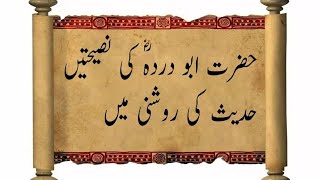 حضرت ابو دردہؓ کی نصیحتیں
حدیث کی روشنی میں